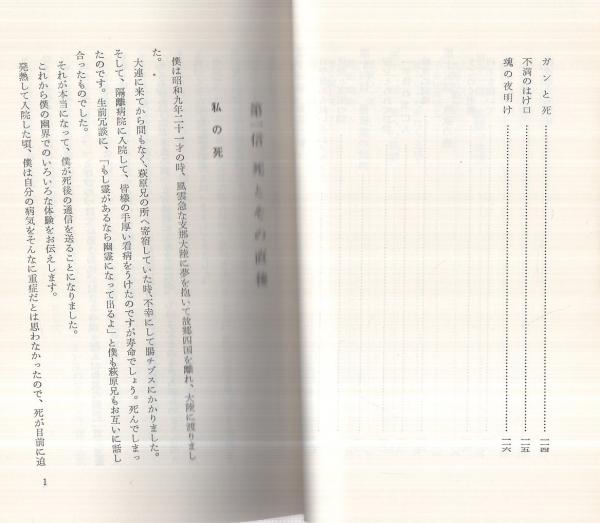 ガンと死……………………………………一一四
不満のはけ口……………………………………一一五
魂の夜明け……………………………………一一六
第一信 死とその直後
私の死
僕は昭和九年二十一才の時、風雲急な支那大陸に夢を抱いて故郷四国を離れ、大陸に渡りまし
た。
大連に来てから間もなく、萩原兄の所へ寄宿していた時、不幸にして腸チブスにかかりました。
そして、隔離病院に入院して、皆様の手厚い看病をうけたのですが寿命でしょう。死んでしまっ
たのです。生前冗談に、「もし霊があるなら幽霊になって出るよ」と僕も萩原兄もお互いに話し
合ったものでした。
それが本当になって、僕が死後の通信を送ることになりました。
これから僕の幽界でのいろいろな体験をお伝えします。
発熱して入院した頃、僕は自分の病気をそんなに重症だとは思わなかったので、死が目前に迫
1